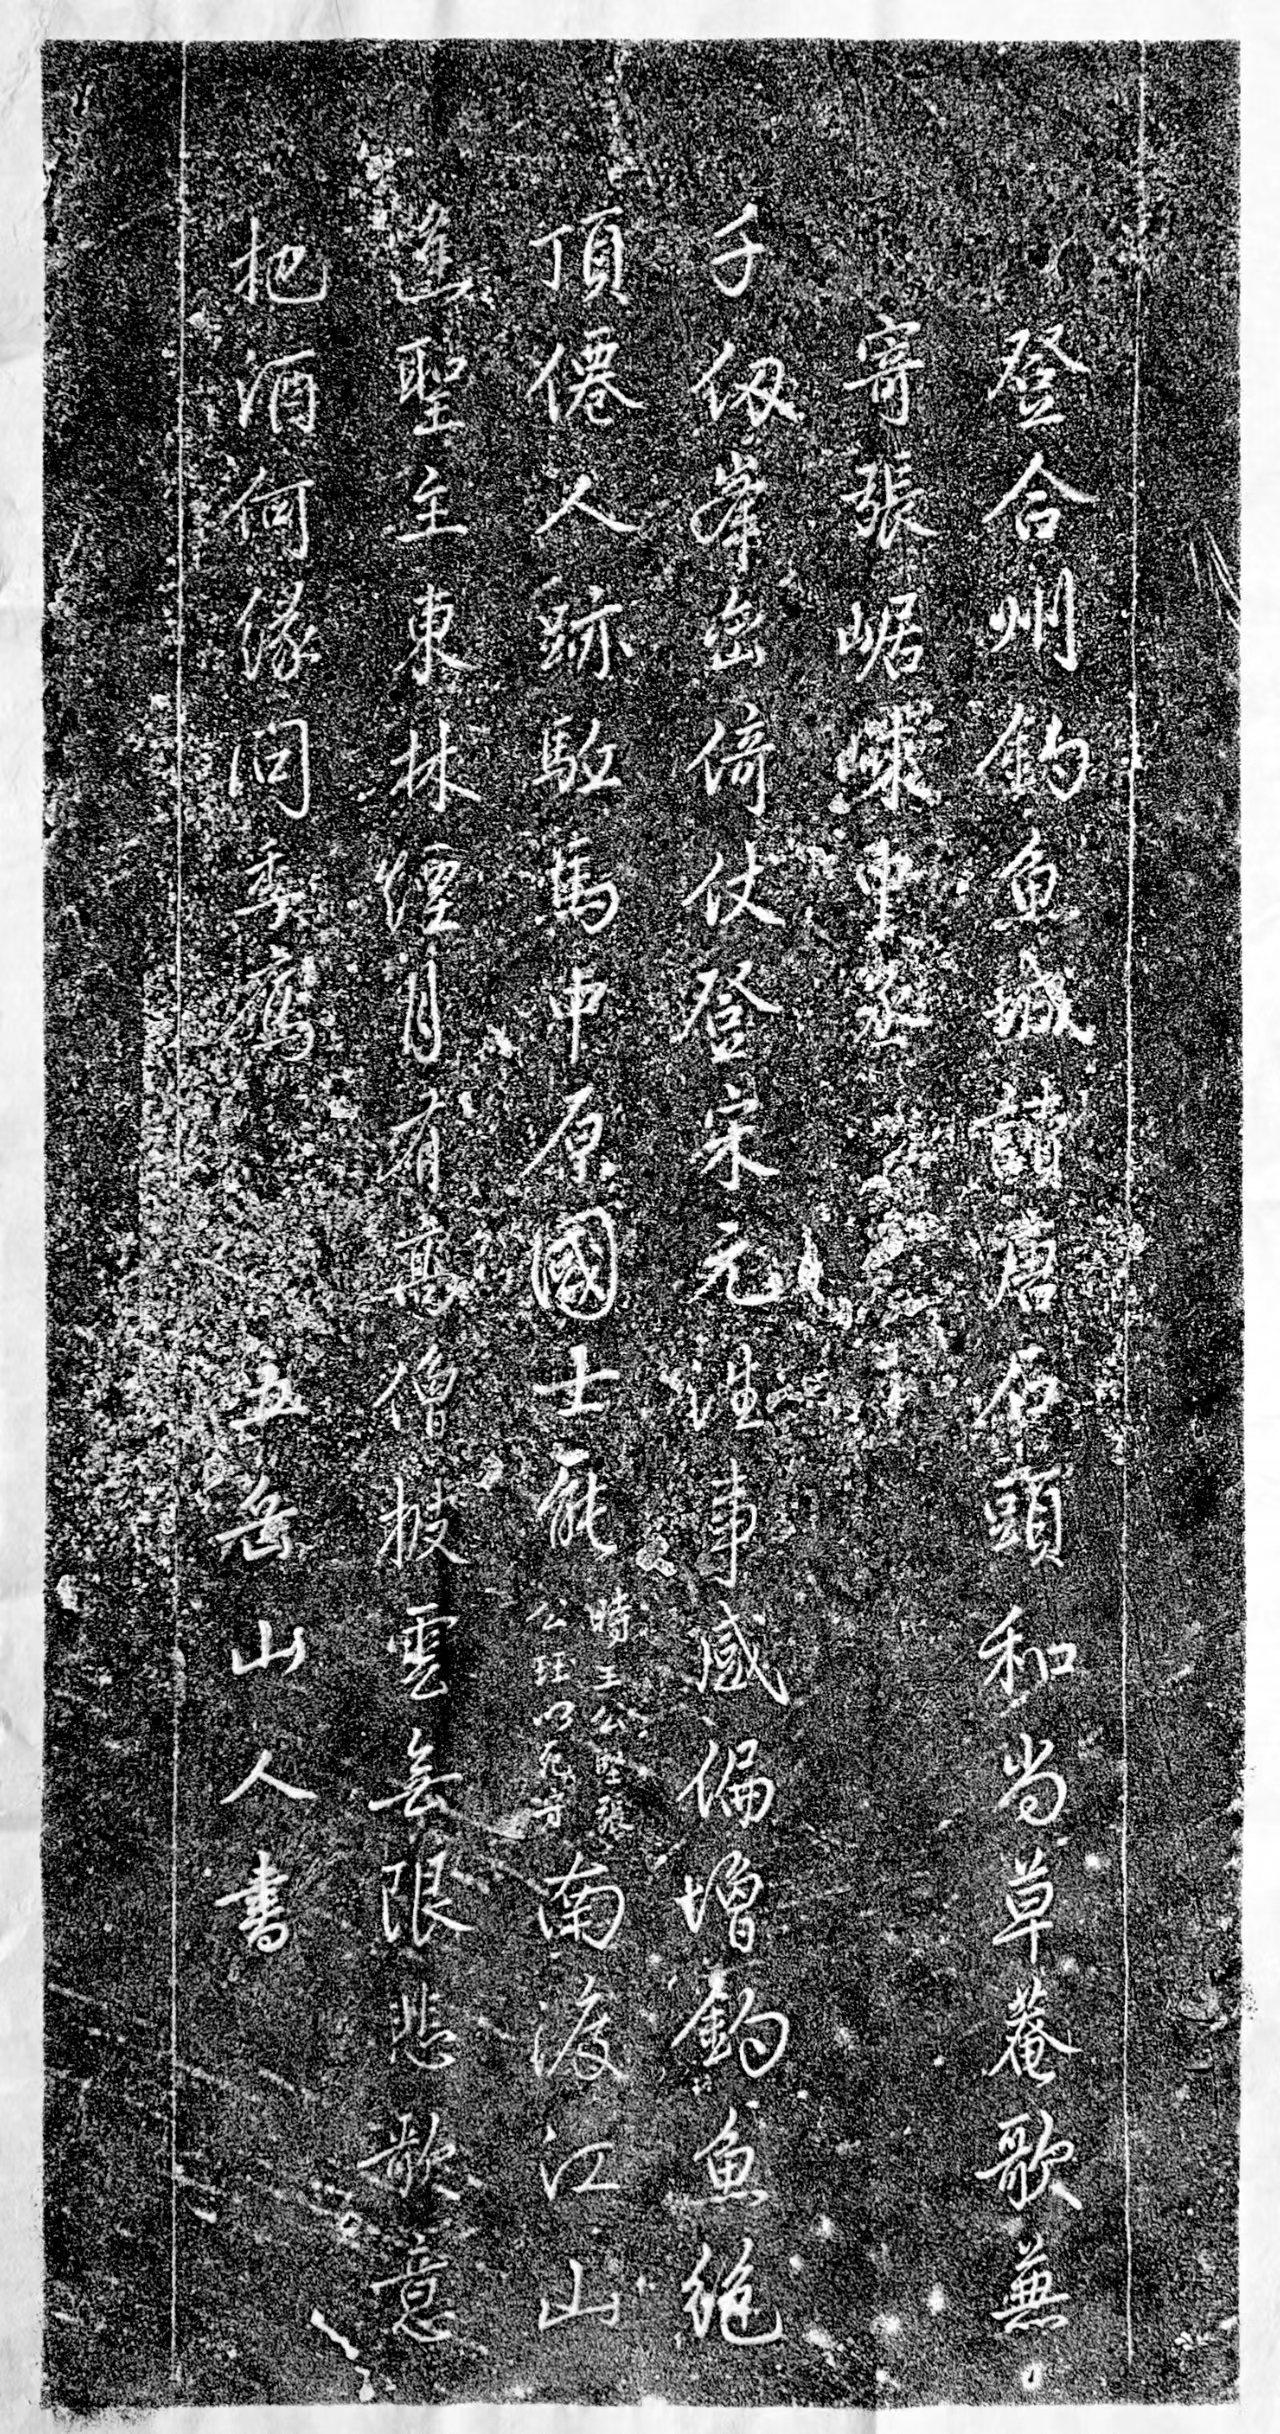 登合州釣魚城讀唐石頭和尚草菴歌兼
寄張崌崍中丞
千仞峯巒倚仗登宋元遺事感偏增釣魚絕
頂僊人跡駐馬中原國士能時王公堅張公珏以死守南渡江山
逢聖主東林煙月有高僧披雲無限悲歌意
把酒何緣問季鷹 五岳山人書